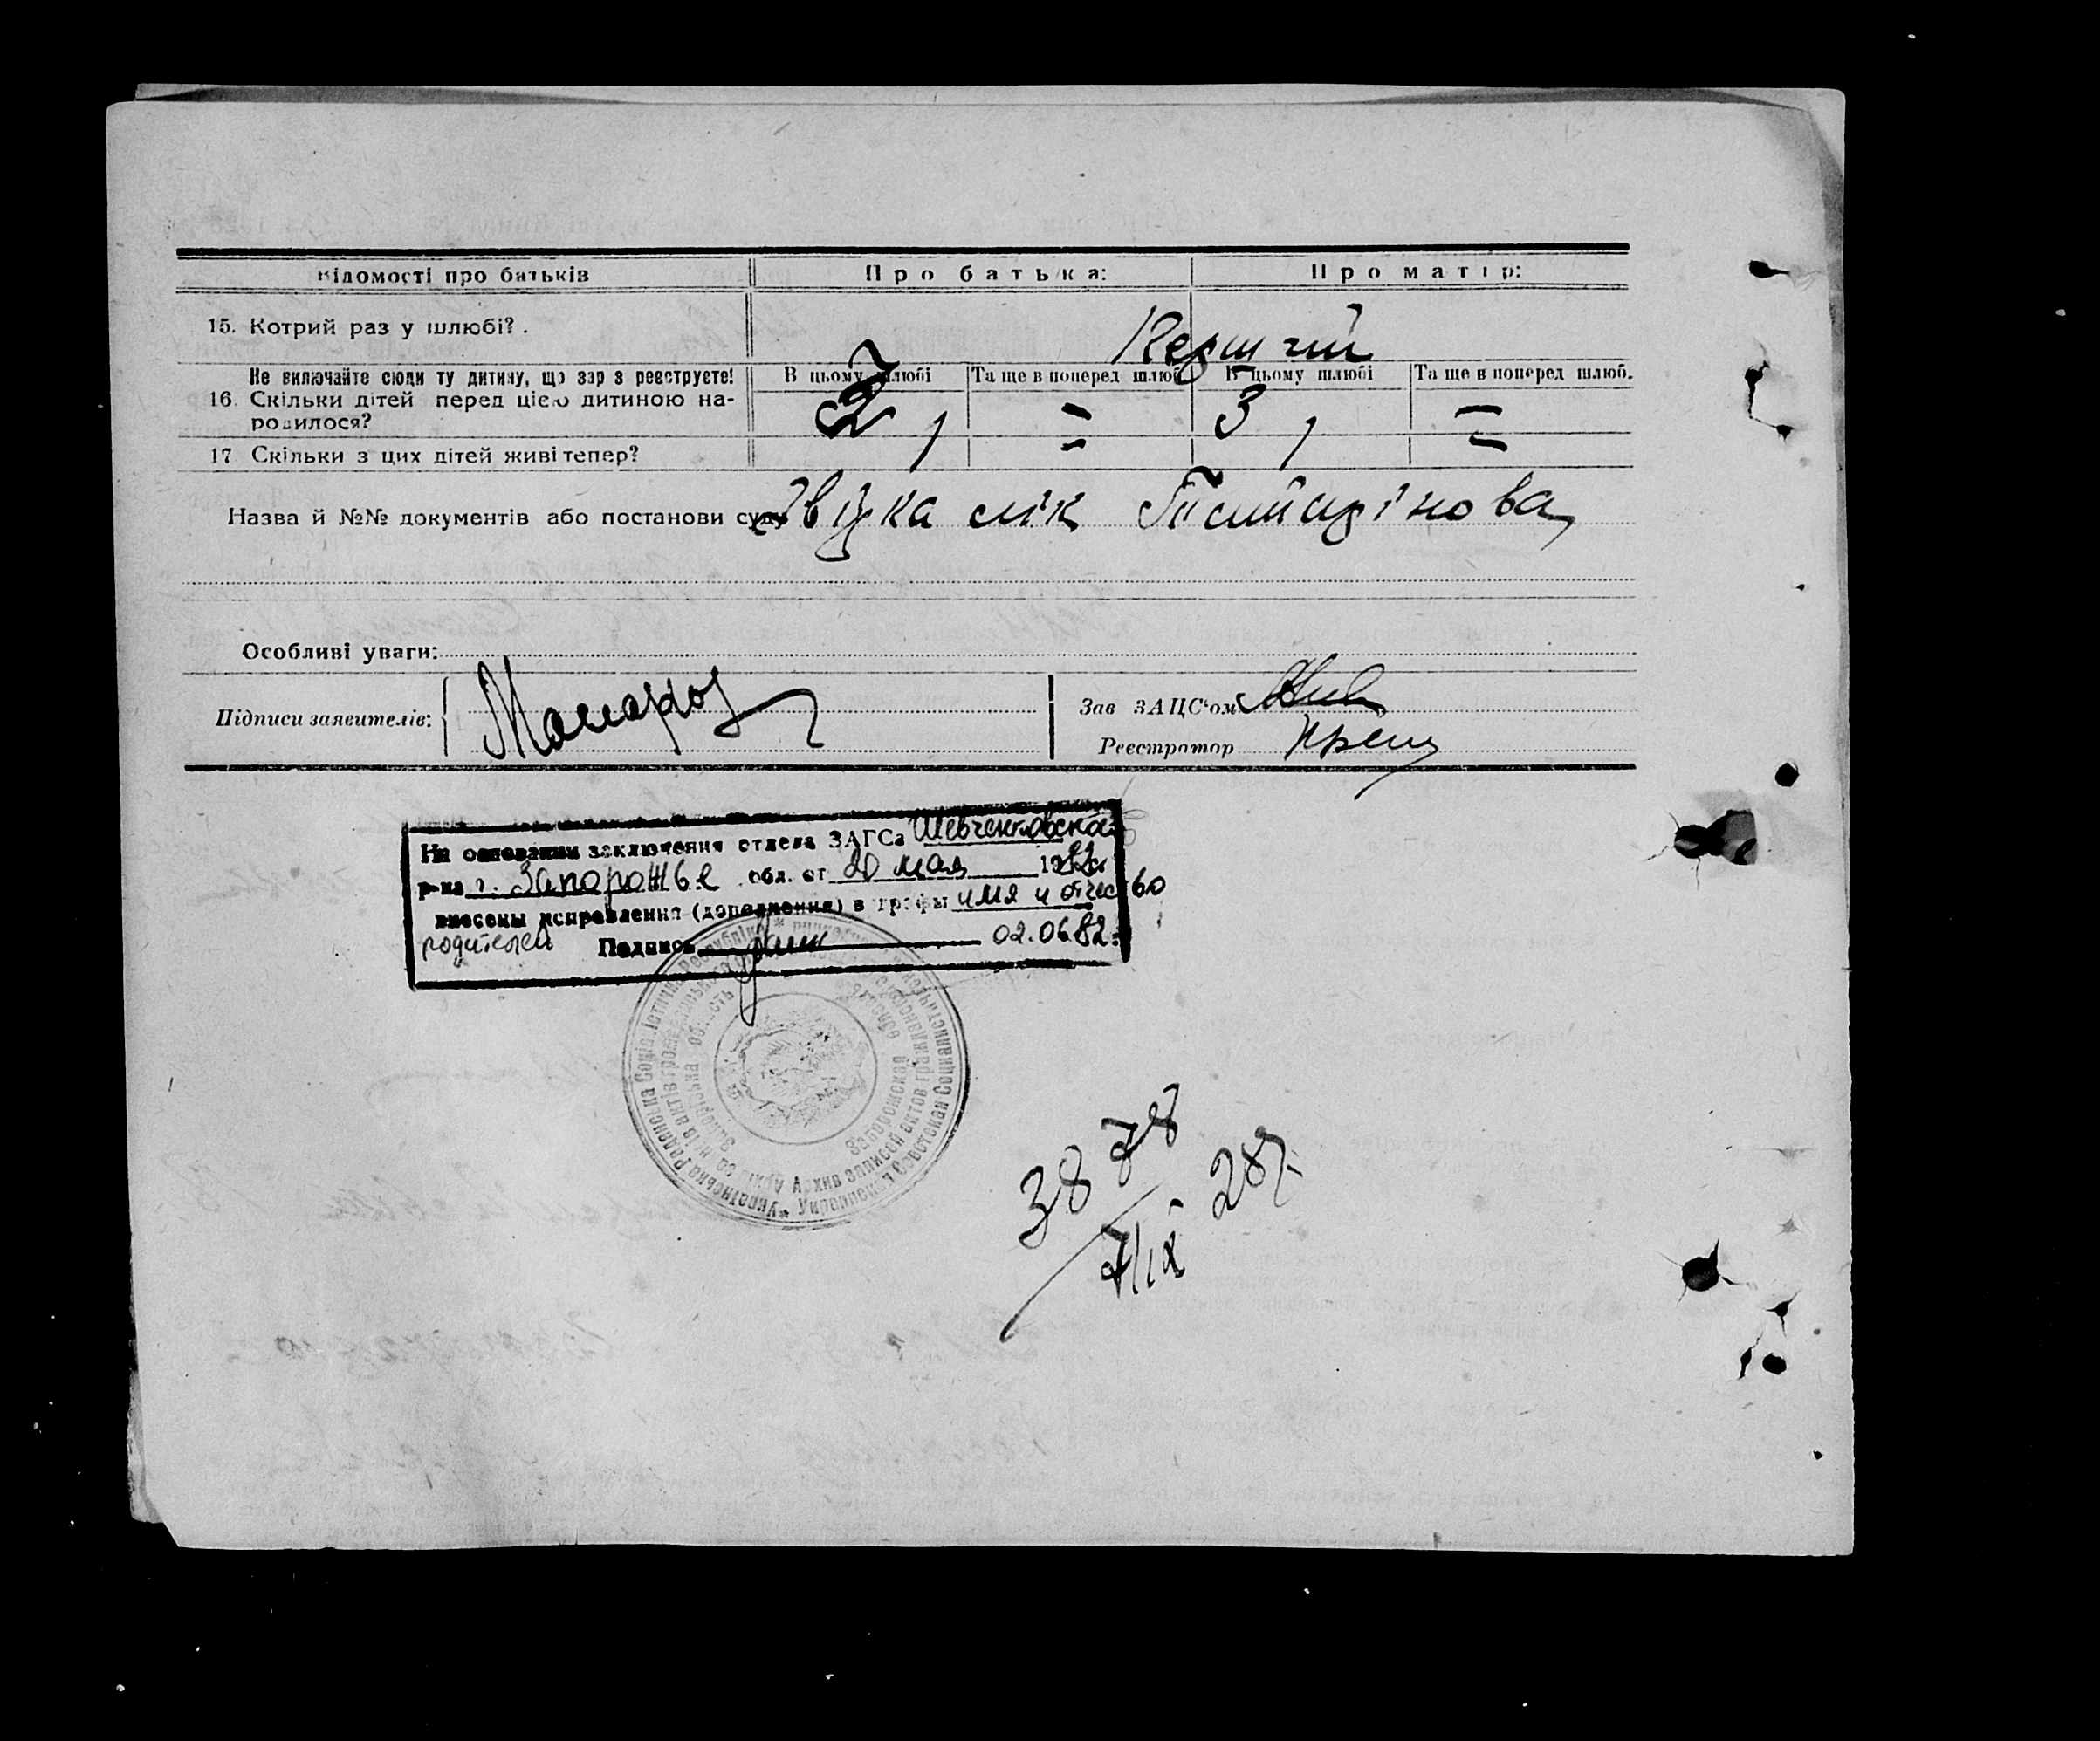 Відомості про батьків Про батька: Про матір:
15. Котрий раз у шлюбі? Перший
Не включайте сюди ту дитину, що зар з реєструєте! В цьому шлюбі Та ще в поперед шлюб В цьому шлюбі Та ще в поперед шлюб.
16. Скільки дітей перед цією дитиною на-
родилося? 2 = 3 =
17 Скільки з цих дітей живі тепер?
Назва й №№ документів або постанови суду Звідка лік
Особливі уваги:
Підписи заявителів:
Зав ЗАЦС'ом
Реєстратор
На основании заключения отдела ЗАГСа Шевченковска
р-на г. Запорожье обл. от 20 мая 1982г
внесены исправления (дополнения) в графы имя и отчество
родителей Подпись 02.06.82.
Українська Радянська Соціалістична Республіка * Украинская Советская Социалистическая
Архив записей актов гражданского
Запорожская область
3878
7/IX 28р.